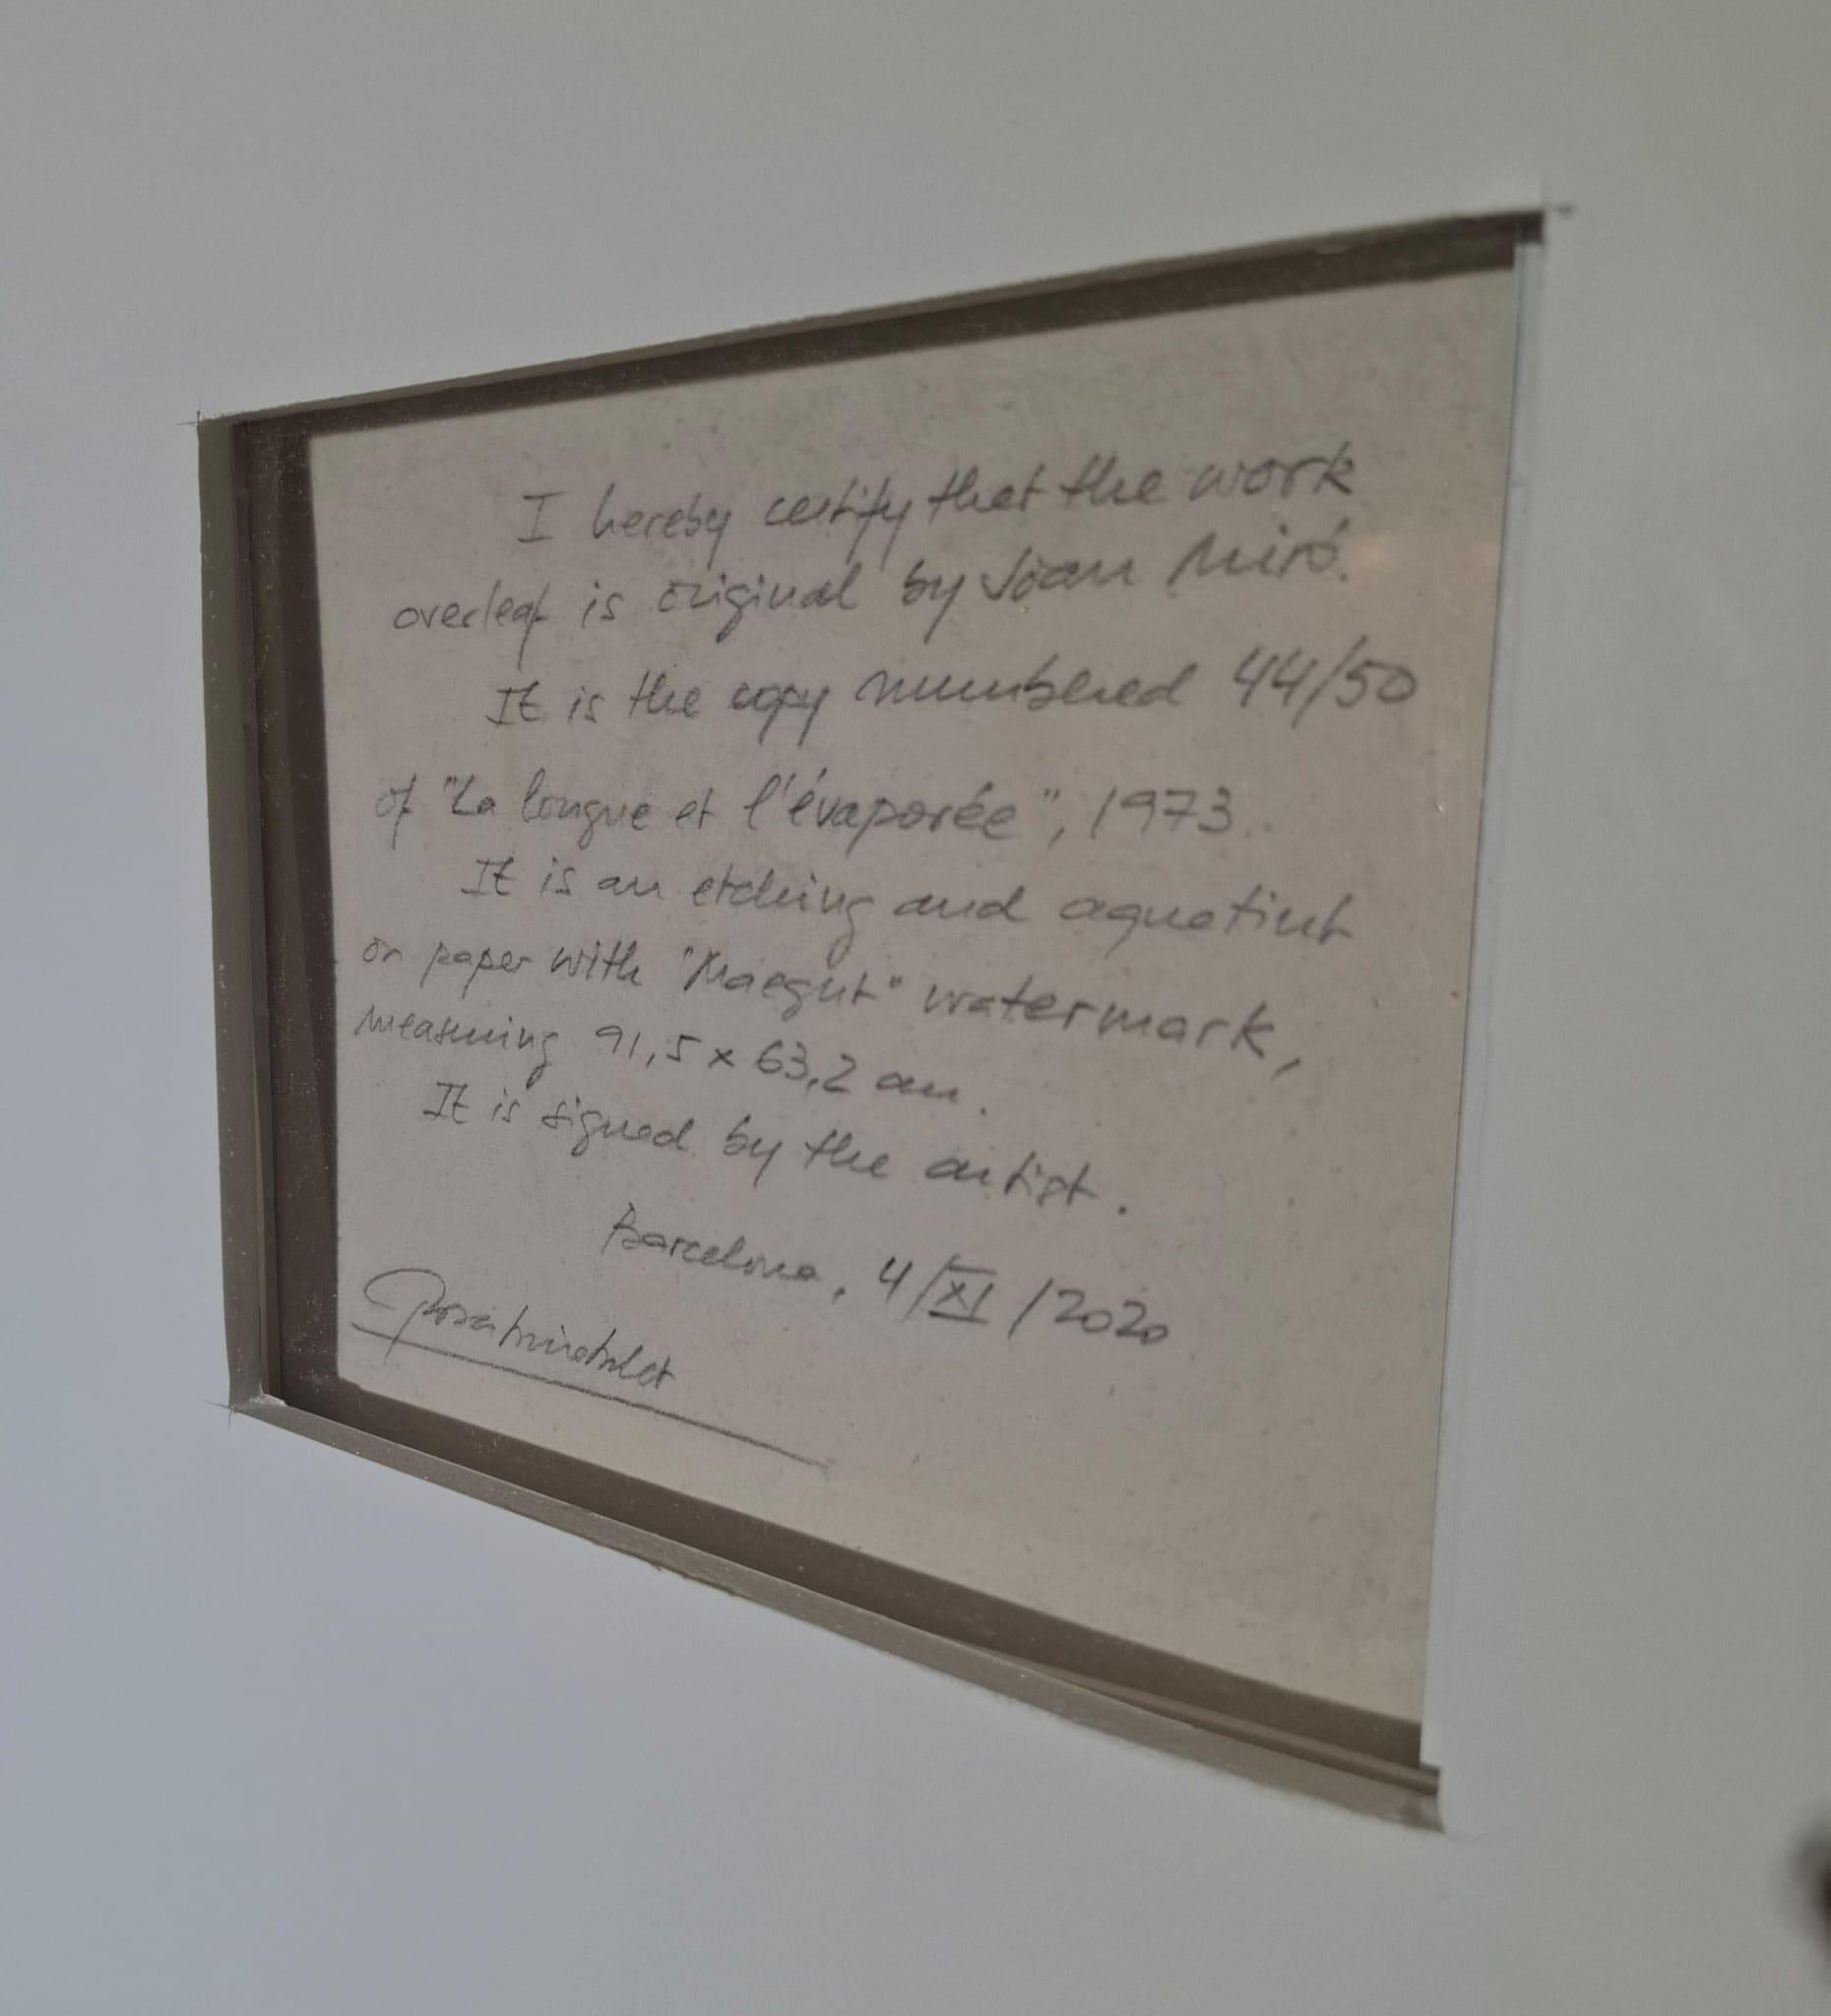 I hereby certify that the work
overleaf is original by Joan Miró.
It is the copy numbered 44/50
of "La longue et l'évaporée", 1973.
It is an etching and aquatint
on paper with "Maeght" watermark,
measuring 91,5 x 63,2 cm.
It is signed by the artist.
Barcelona, 4/XI/2020